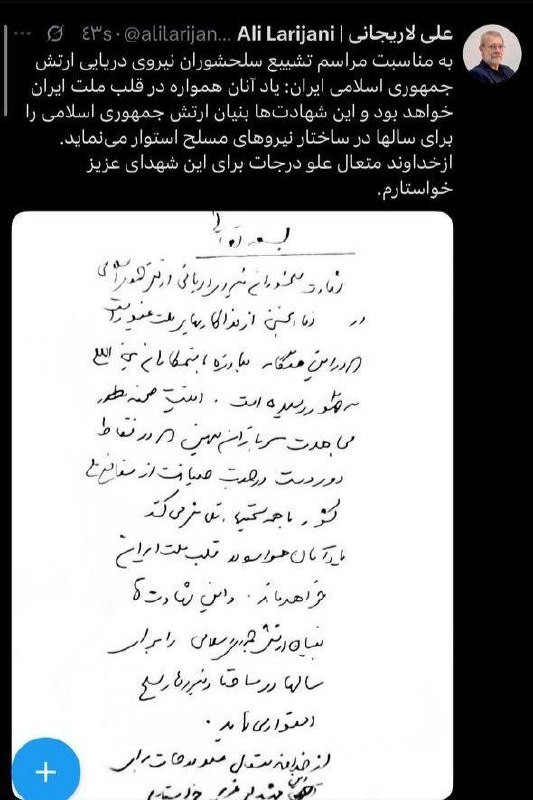 علی لاریجانی | Ali Larijani @alilarijan... · ٤٣s
به مناسبت مراسم تشییع سلحشوران نیروی دریایی ارتش
جمهوری اسلامی ایران: یاد آنان همواره در قلب ملت ایران
خواهد بود و این شهادت‌ها بنیان ارتش جمهوری اسلامی را
برای سالها در ساختار نیروهای مسلح استوار می‌نماید.
ازخداوند متعال علو درجات برای این شهدای عزیز
خواستارم.
بسمه تعالی
شهادت سلحشوران نیروی دریایی ارتش جمهوری اسلامی
در
از فداکاریهای ملت
در این هنگامه مبارزه با ستمکاران بین المللی
به ظهور رسیده است.
مجاهدت سربازان میهن در نقاط
دوردست در جهت صیانت از منافع ملی
کشور با همه سختیها
یاد آنان همواره در قلب ملت ایران
خواهد ماند. و این شهادت‌ها
بنیان ارتش جمهوری اسلامی را برای
سالها در ساختار نیروهای مسلح
استوار می‌نماید.
از خداوند متعال علو درجات برای
این شهدای عزیز خواستارم